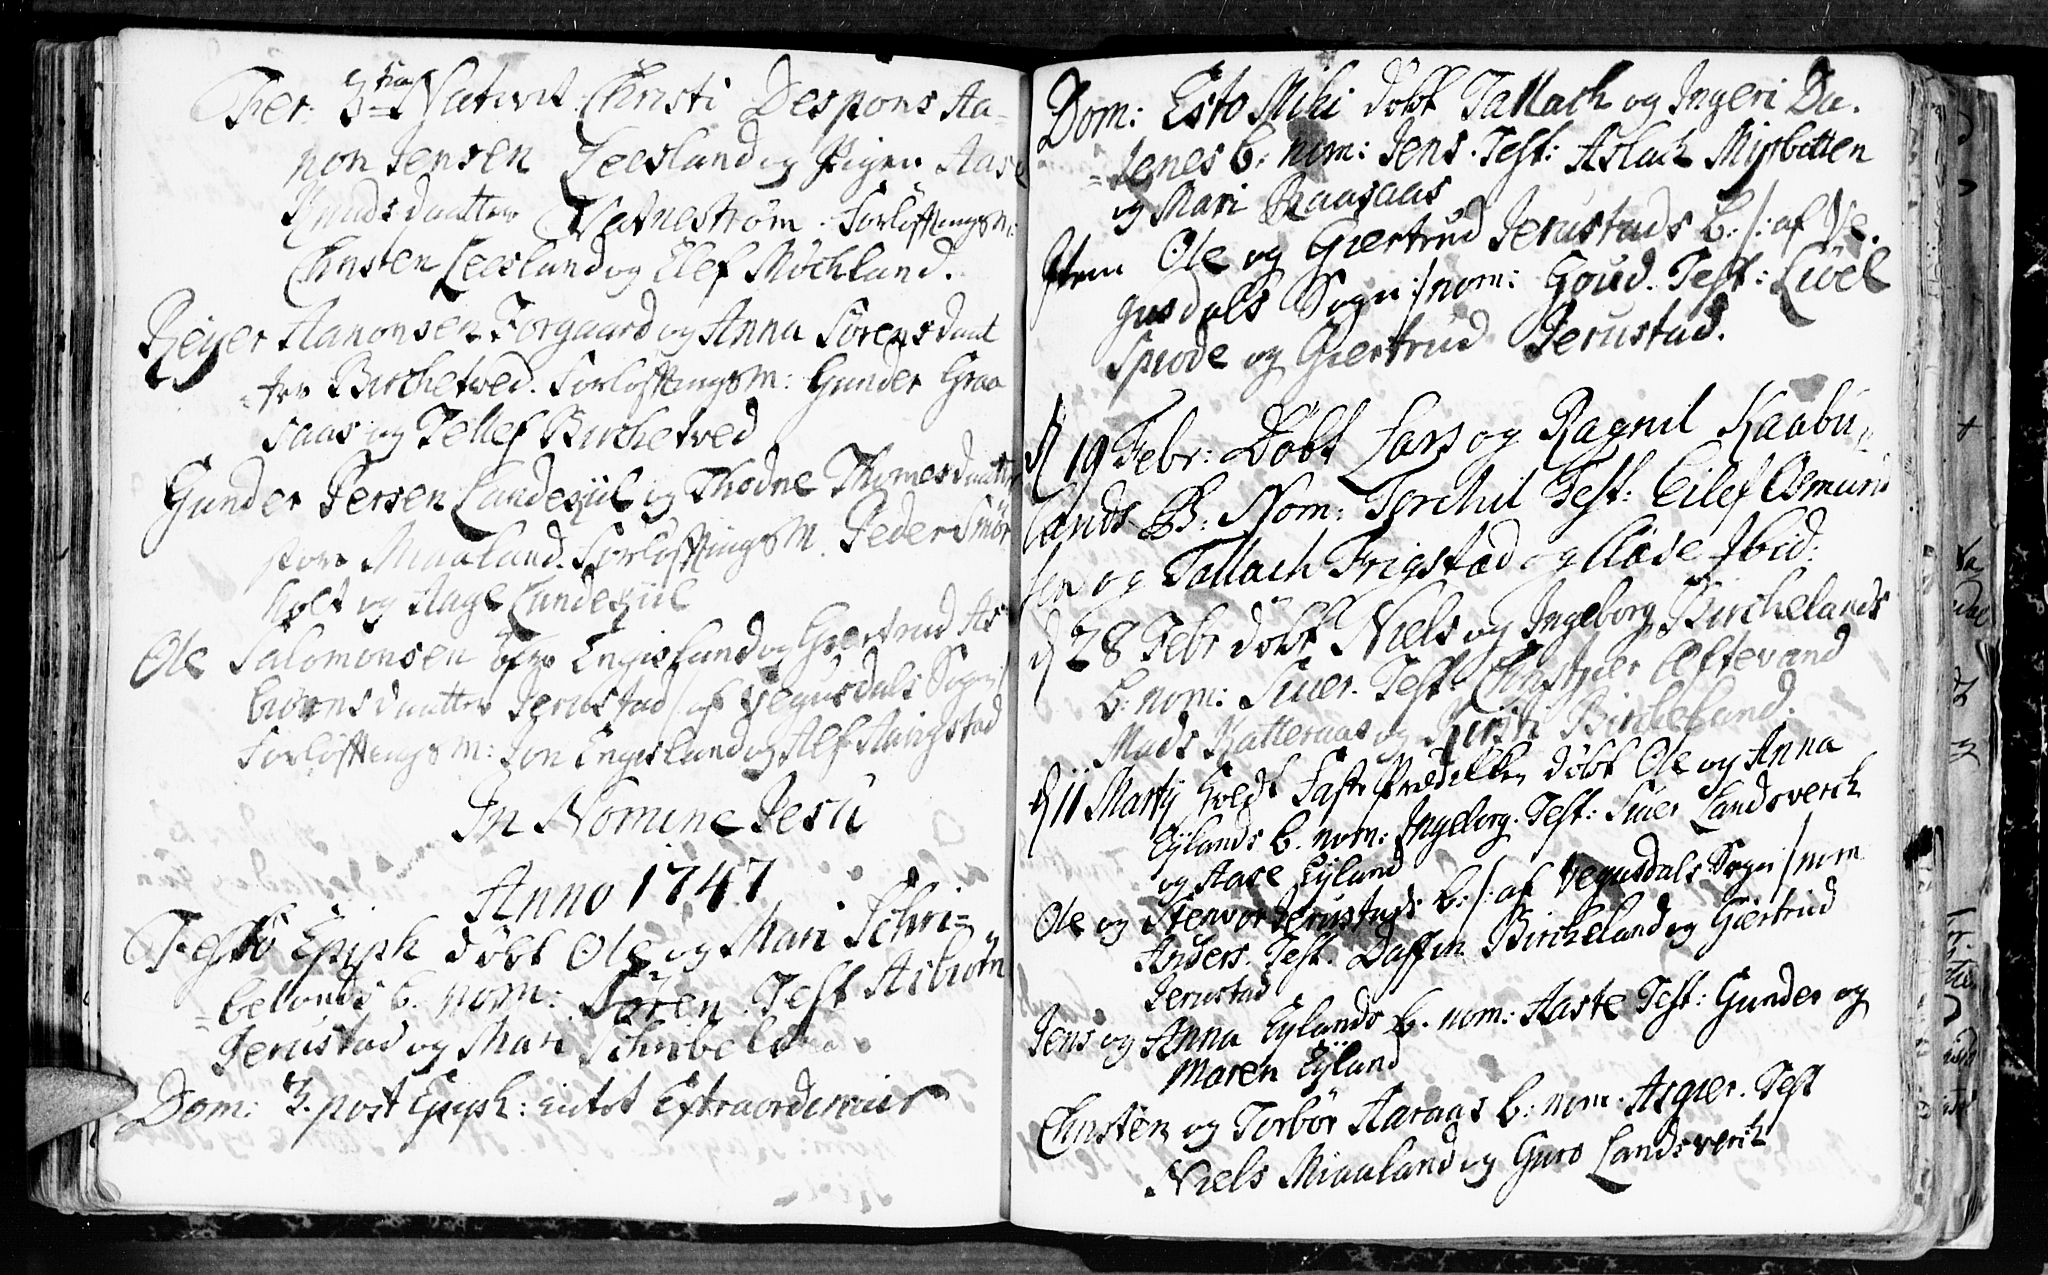 Fer: 3tia Nativit. Christi Despons Aa-
non Jensen Leesland og Pigen Aase
Knudsdaatter Vatnestrøm. Forløftingsm:
Christen Leesland og Elef Mochland.
Reyer Aanonsen Torgaard og Anna Sørensdaat
=ter Birchetved. Forløftingsm: Gunder Graa
saas og Tellef Birchetved
Gunder Persen Landeziil og Thodne Thomesdaatter
store Miaaland. Forløftingsm. Peder Smør
holt og Aage Landeziil
Ole Salomonsen Engisland og Giertrud As
biørnsdaatter Jerustad /: af Vegusdals Sogn
Forløftingsm: Jon Engisland og Alf Haugstad
In Nomine Jesu
Anno 1747
Festo Epiph døbt Ole og Mari Schri=
=belands b. nom: Søren. Test Asbiørn
Jerustad og Mari Schribeland
Dom: 3. post Epiph: Extraordinair
Dom: Esto Mihi døbt Tallach og Ingeri Da.
=lenes b: nom: Jens. Test: Aslach
og Mari Raasaas
Item Ole og Giertrud Jerustads b: /: af Ve.
gusdals Sogn :/ nom: Goud. Test: Livel
Spiode og Giertrud Jerustad.
d 19 Febr: Døbt Lars og Ragnil Kaabu
lands B: Nom: Torchil Test: Eilef Osmund
sen og Tallach Frigstad og Aase Ibid:
d 28 Febr døbt Niels og Ingeborg Birchelands
b. nom: Siuer. Test: Aftevand
Mads Katteraas og Kirsti Bircheland.
d 11 Martij holdt Faste Prædikken døbt Ole og Anna
Eylands b. nom: Ingeborg. Test: Siuer Landsverch
og Aase Eyland
Ole og Stenvor Jerustads b: /: af Vegusdals Sogn :/ nom
Anders. Test. Daffin Bircheland og Giertrud
Jerustad
Jens og Anna Eylands b. nom: Aaste Test: Gunder og
Maren Eyland
Christen og Torbor Aaraas b: nom. Asgier. Test
Niels Miaaland og Guro Landsverch